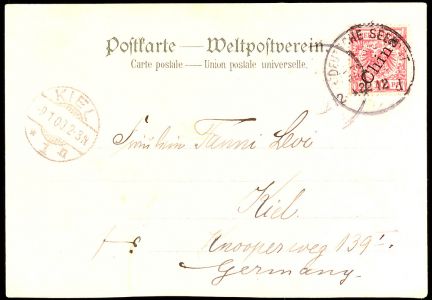 Postkarte — Weltpostverein
Carte postale — Union postale universelle.
DEUTSCHE SEEP
China
KIEL
Fräulein Fanni Levi
Kiel.
Knooperweg 139 I.
Germany.